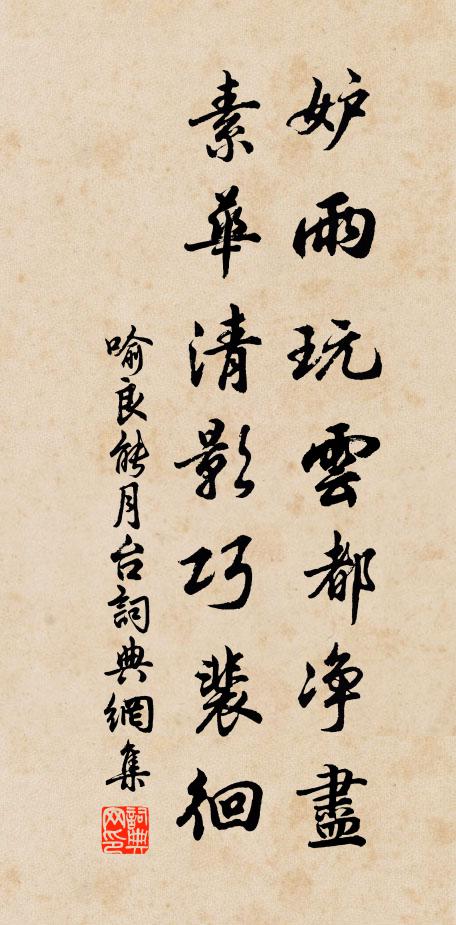 妒雨玩雲都净盡
素華清影巧裴徊
喻良能月台詞典網集
詞典网印